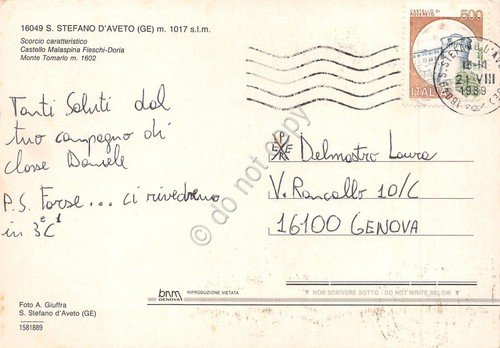 16049 S. STEFANO D'AVETO (GE) m. 1017 s.l.m.
Scorcio caratteristico
Castello Malaspina Fieschi-Doria
Monte Tomarlo m. 1602
500
ITALIA
13-14
21 VIII
1989
Tanti Saluti dal
tuo compagno di
classe Daniele
P.S. Forse... ci rivedremo
in 3ª C
Delmastro Laura
V. Roncallo 10/C
16100 GENOVA
do not copy
bnm
GENOVA
RIPRODUZIONE VIETATA
NON SCRIVERE SOTTO - DO NOT WRITE BELOW
Foto A. Giuffra
S. Stefano d'Aveto (GE)
1581889